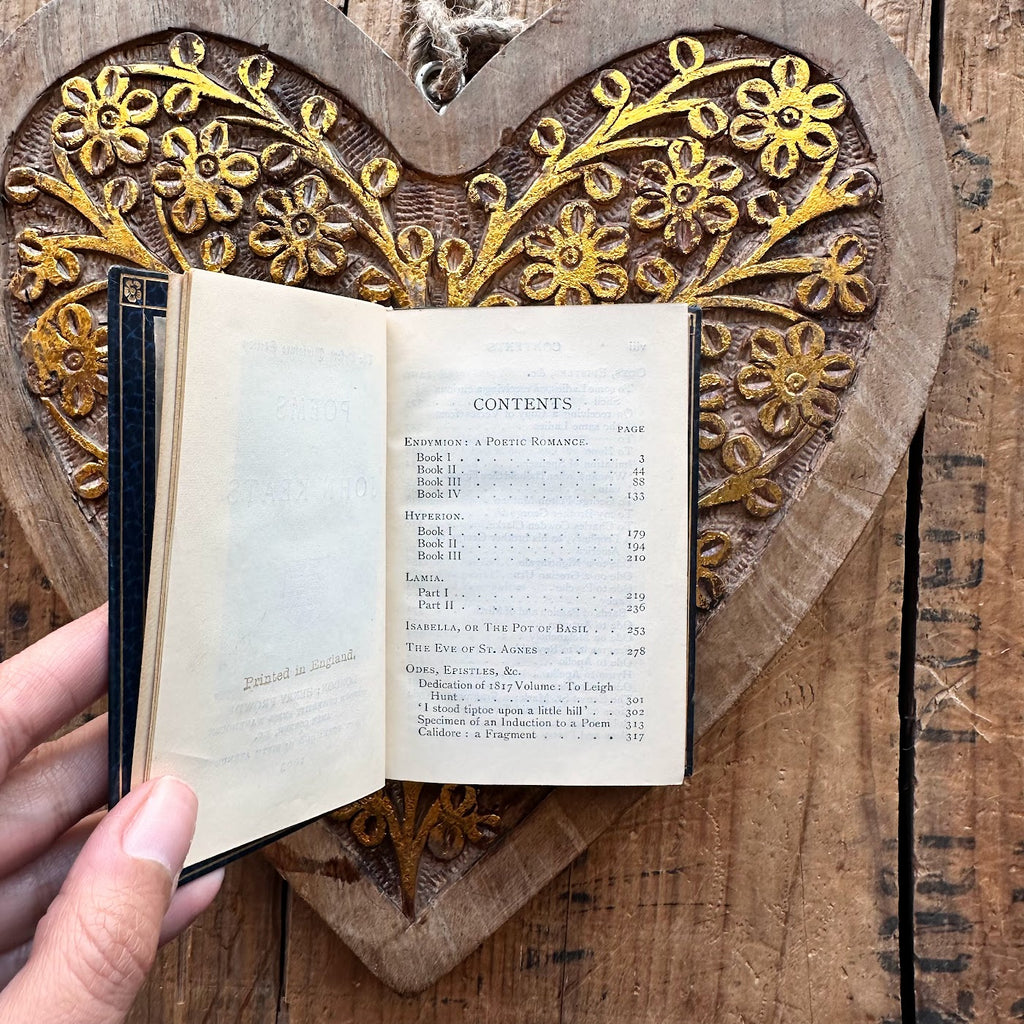 Printed in England.
CONTENTS
PAGE
ENDYMION: A POETIC ROMANCE.
Book I . . . . . . . . . . . 3
Book II . . . . . . . . . . . 44
Book III . . . . . . . . . . . 88
Book IV . . . . . . . . . . . 133
HYPERION.
Book I . . . . . . . . . . . 179
Book II . . . . . . . . . . . 194
Book III . . . . . . . . . . . 210
LAMIA.
Part I . . . . . . . . . . . 219
Part II . . . . . . . . . . . 236
ISABELLA, OR THE POT OF BASIL . . 253
THE EVE OF ST. AGNES . . . . . 278
ODES, EPISTLES, &c.
Dedication of 1817 Volume: To Leigh
Hunt . . . . . . . . . . 301
'I stood tiptoe upon a little hill' . . 302
Specimen of an Induction to a Poem 313
Calidore: a Fragment . . . . . 317